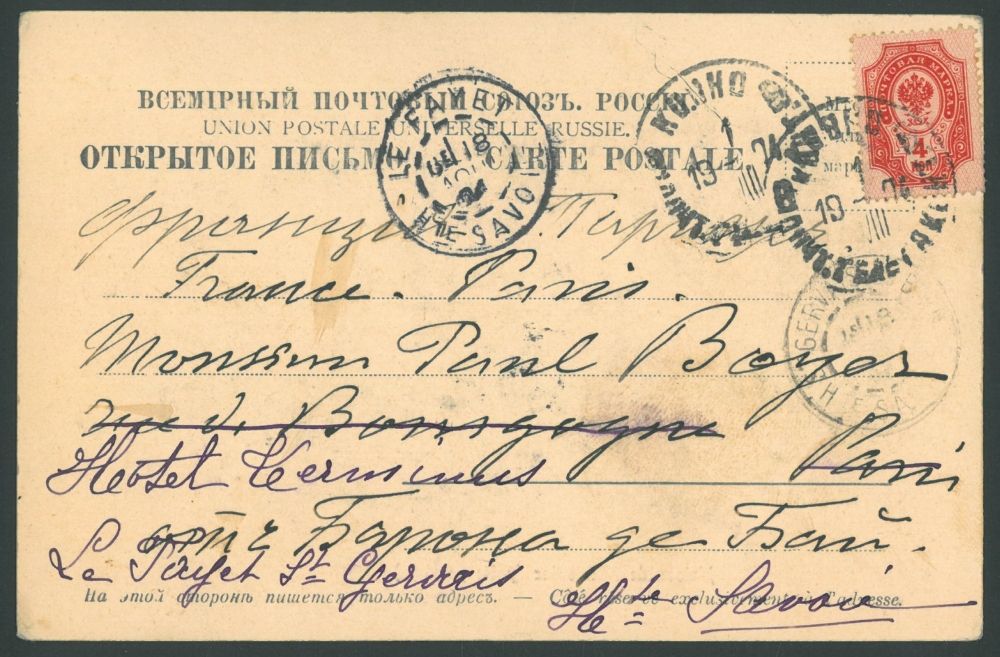 ВСЕМІРНЫЙ ПОЧТОВЫЙ СОЮЗЪ. РОССІЯ
UNION POSTALE UNIVERSELLE RUSSIE.
ОТКРЫТОЕ ПИСЬМО CARTE POSTALE
ПОЧТОВАЯ МАРКА
4
LE FAYET
18
HTE SAVOIE
19
24
19
ST GERVAIS
HTE SA
France. Paris.
Monsieur Paul Boyer
rue de Bourgogne Paris
Hotel Terminus
отъ Барона де Бай.
Le Fayet St Gervais
Hte Savoie
На этой сторонѣ пишется только адресъ. — Côté réservé exclusivement à l'adresse.